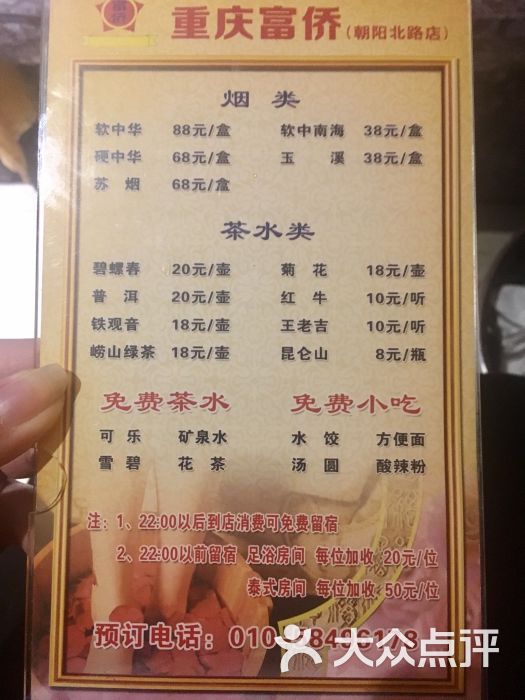 富侨
重庆富侨(朝阳北路店)
烟 类
软中华 88元/盒 软中南海 38元/盒
硬中华 68元/盒 玉 溪 38元/盒
苏 烟 68元/盒
茶水类
碧螺春 20元/壶 菊 花 18元/壶
普 洱 20元/壶 红 牛 10元/听
铁观音 18元/壶 王老吉 10元/听
崂山绿茶 18元/壶 昆仑山 8元/瓶
免费茶水 免费小吃
可 乐 矿泉水 水 饺 方便面
雪 碧 花 茶 汤 圆 酸辣粉
注：1、22:00以后到店消费可免费留宿
2、22:00以前留宿 足浴房间 每位加收 20元/位
泰式房间 每位加收 50元/位
预订电话：010-
大众点评